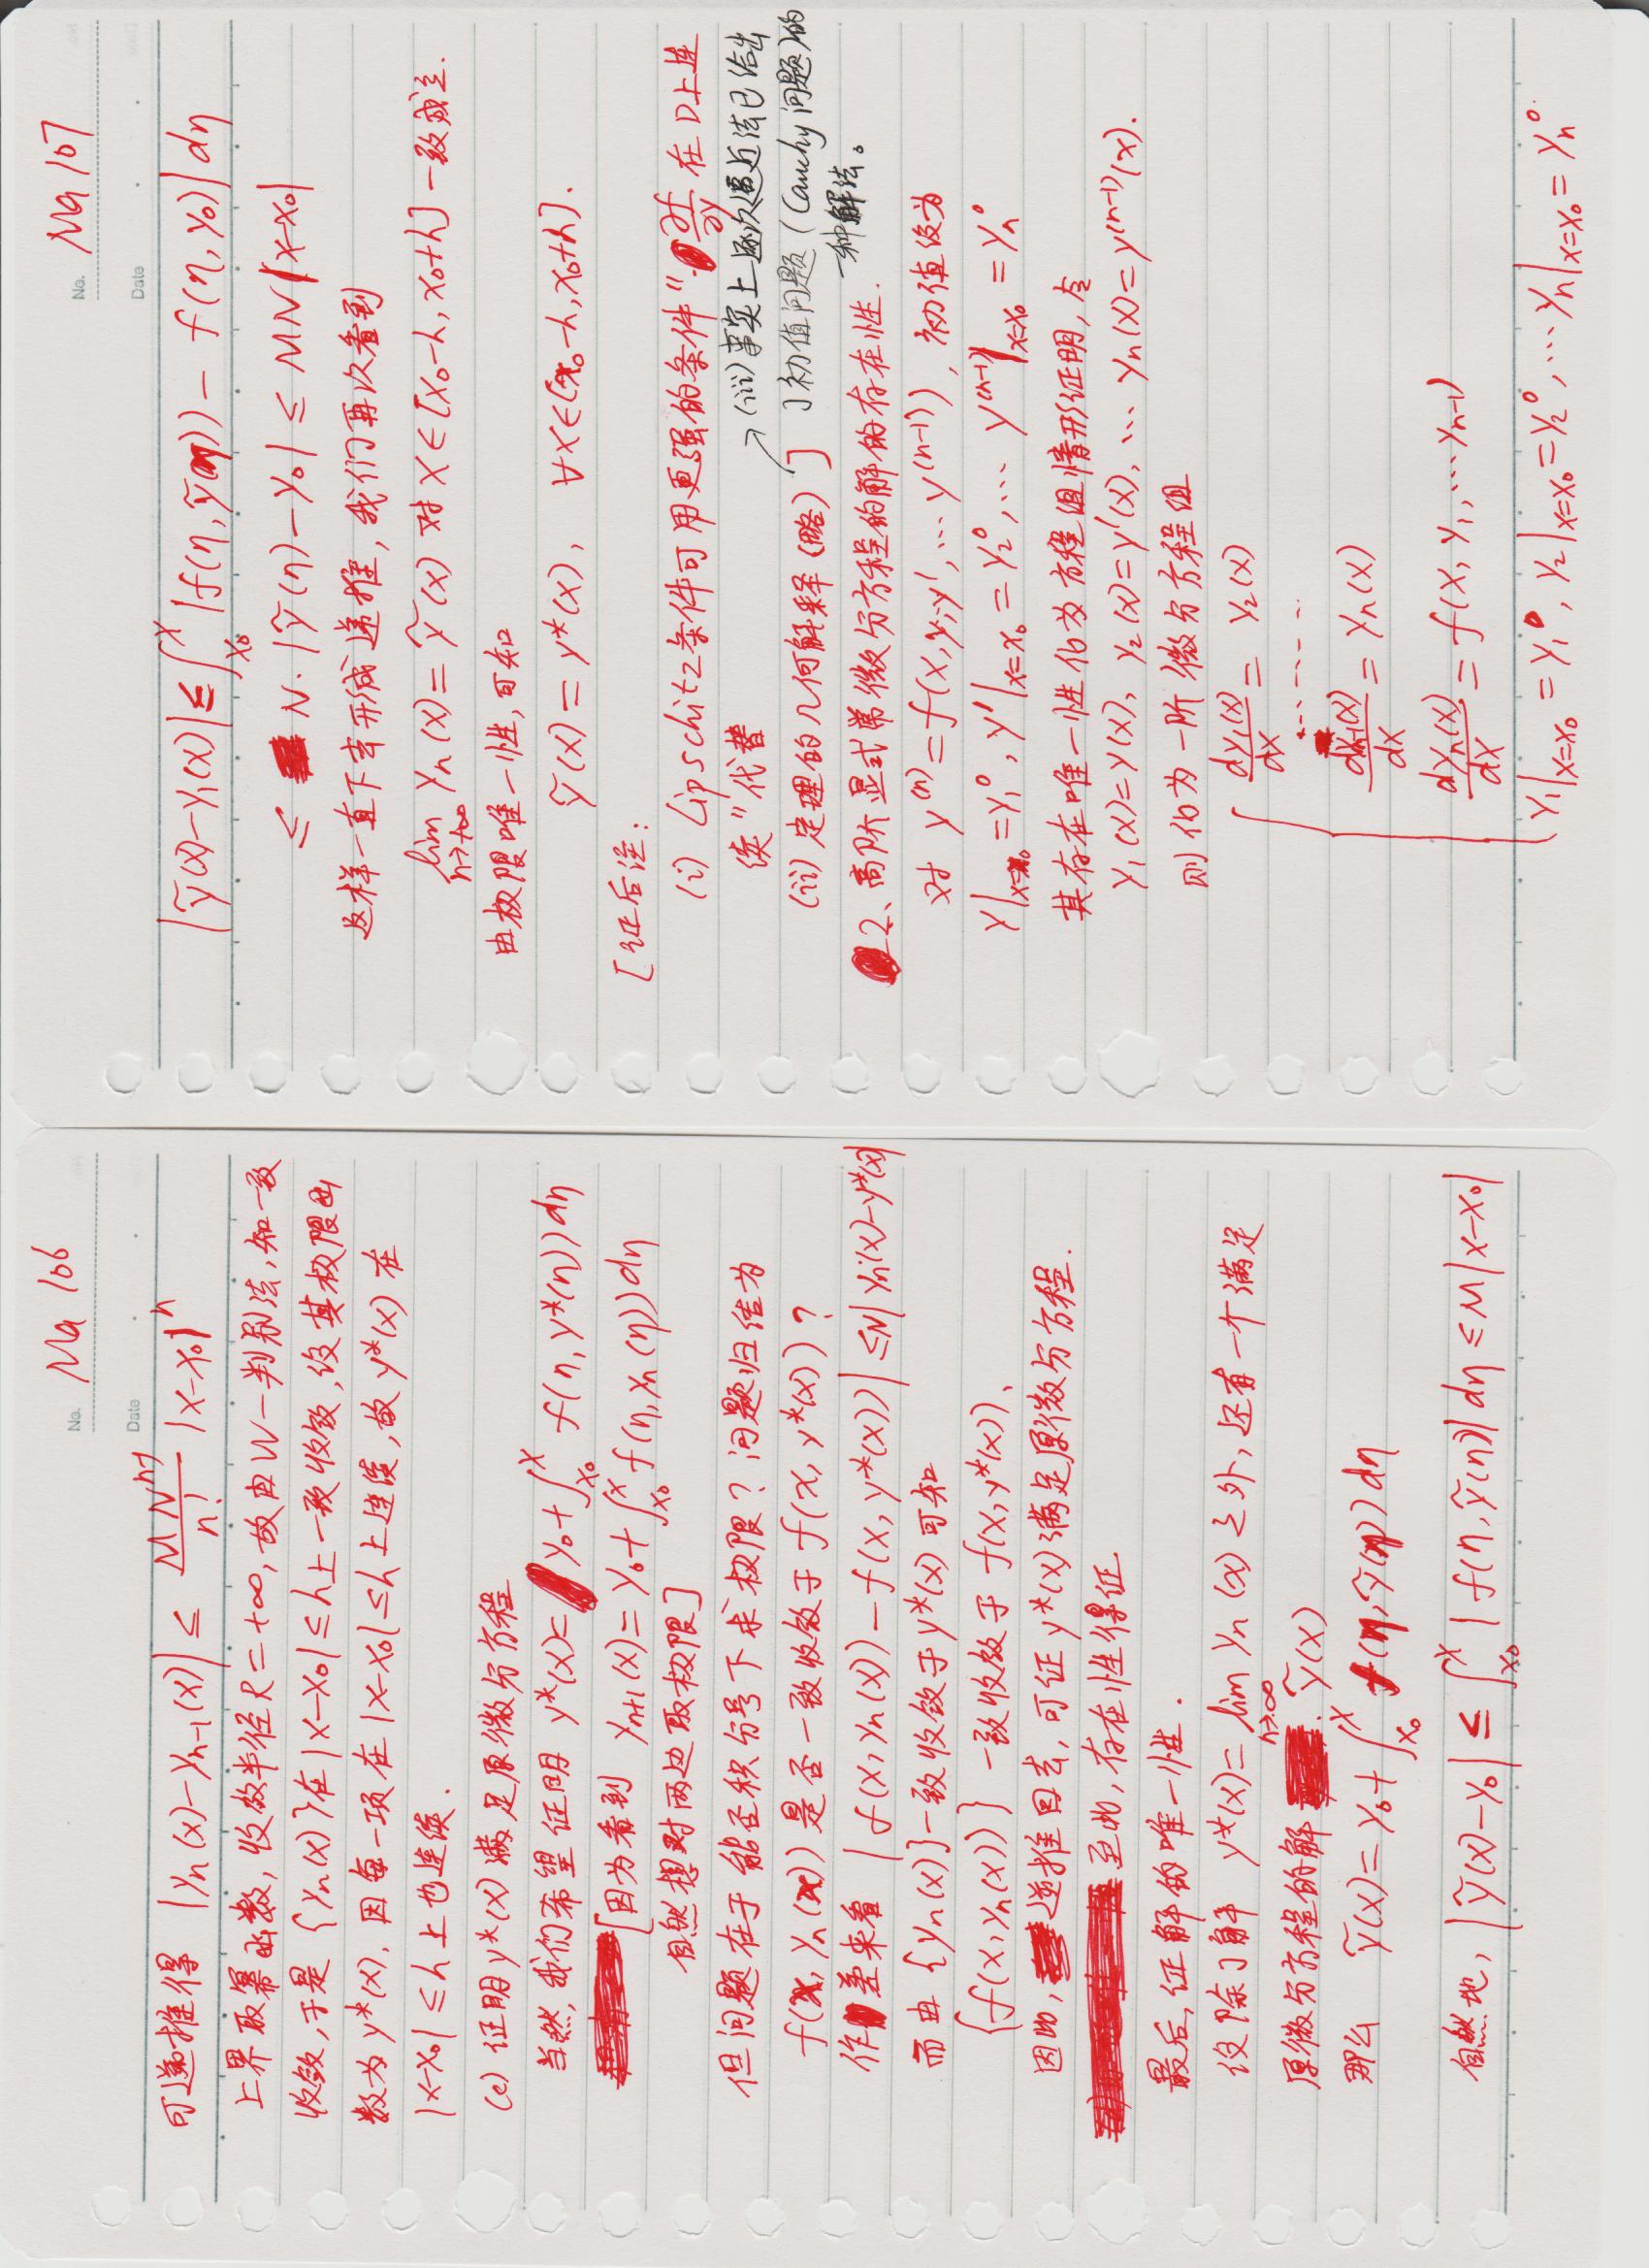 No. Ma 106
Date
可递推得 |yn(x)-yn-1(x)| ≤ MN^(n-1)/n! |x-x0|^n
上界取幂函数, 收敛半径R=+∞, 故由W-判别法, 知一致
收敛, 于是 {yn(x)}在|x-x0|≤h上一致收敛, 设其极限函
数为y*(x). 因每一项在|x-x0|≤h上连续, 故y*(x)在
|x-x0|≤h上也连续.
(c) 证明y*(x)满足原微分方程
当然, 我们希望证明 y*(x)= y0+∫_{x0}^{x} f(η, y*(η))dη
[因为看到 yn+1(x)=y0+∫_{x0}^{x} f(η, yn(η))dη
自然想对两边取极限]
但问题在于能否积分号下求极限? 问题归结为
f(x, yn(x))是否一致收敛于f(x, y*(x))?
作差来看 |f(x, yn(x))-f(x, y*(x))|≤N|yn(x)-y*(x)|
而由{yn(x)}一致收敛于y*(x)可知
{f(x, yn(x))} 一致收敛于 f(x, y*(x)).
因此, 逆推回去, 可证y*(x)满足原微分方程.
至此, 存在性得证
最后, 证解的唯一性.
设除了解 y*(x)=lim_{n→∞} yn(x)之外, 还有一个满足
原微分方程的解. ỹ(x)
那么 ỹ(x)=y0+∫_{x0}^{x} f(η, ỹ(η))dη
自然地, |ỹ(x)-y0| ≤ ∫_{x0}^{x} |f(η, ỹ(η)| dη ≤M|x-x0|
No. Ma 107
Date
|ỹ(x)-y1(x)|≤∫_{x0}^{x} |f(η, ỹ(η))- f(η, y0)| dη
≤ N·|ỹ(η)-y0| ≤ MN|x-x0|
这样一直下去形成递推, 我们再次看到
lim_{n→+∞} yn(x)=ỹ(x) 对x∈[x0-h, x0+h]一致成立.
由极限唯一性, 可知
ỹ(x) = y*(x), ∀x∈[x0-h, x0+h].
[证后注:
(i) Lipschitz条件可用更强的条件"∂f/∂y 在D上连
续"代替
(ii) 定理的几何解释(略) ]
→(iii) 事实上逐次逼近法已给出
了初值问题(Cauchy问题)的
一种解法。
2、高阶显式常微分方程的解的存在性.
对 y^(n)=f(x, y, y', … y^(n-1)), 初值设为
y|x=x0=y1^0, y'|x=x0=y2^0, … y^(n-1)|x=x0=yn^0
其存在唯一性化为方程组情形证明, 令
y1(x)=y(x), y2(x)=y'(x), … yn(x)=y^(n-1)(x).
则化为一阶微分方程组
dy1(x)/dx = y2(x)
........
dyn-1(x)/dx = yn(x)
dyn(x)/dx = f(x, y1, … yn-1)
y1|x=x0=y1^0, y2|x=x0=y2^0, … yn|x=x0=yn^0.